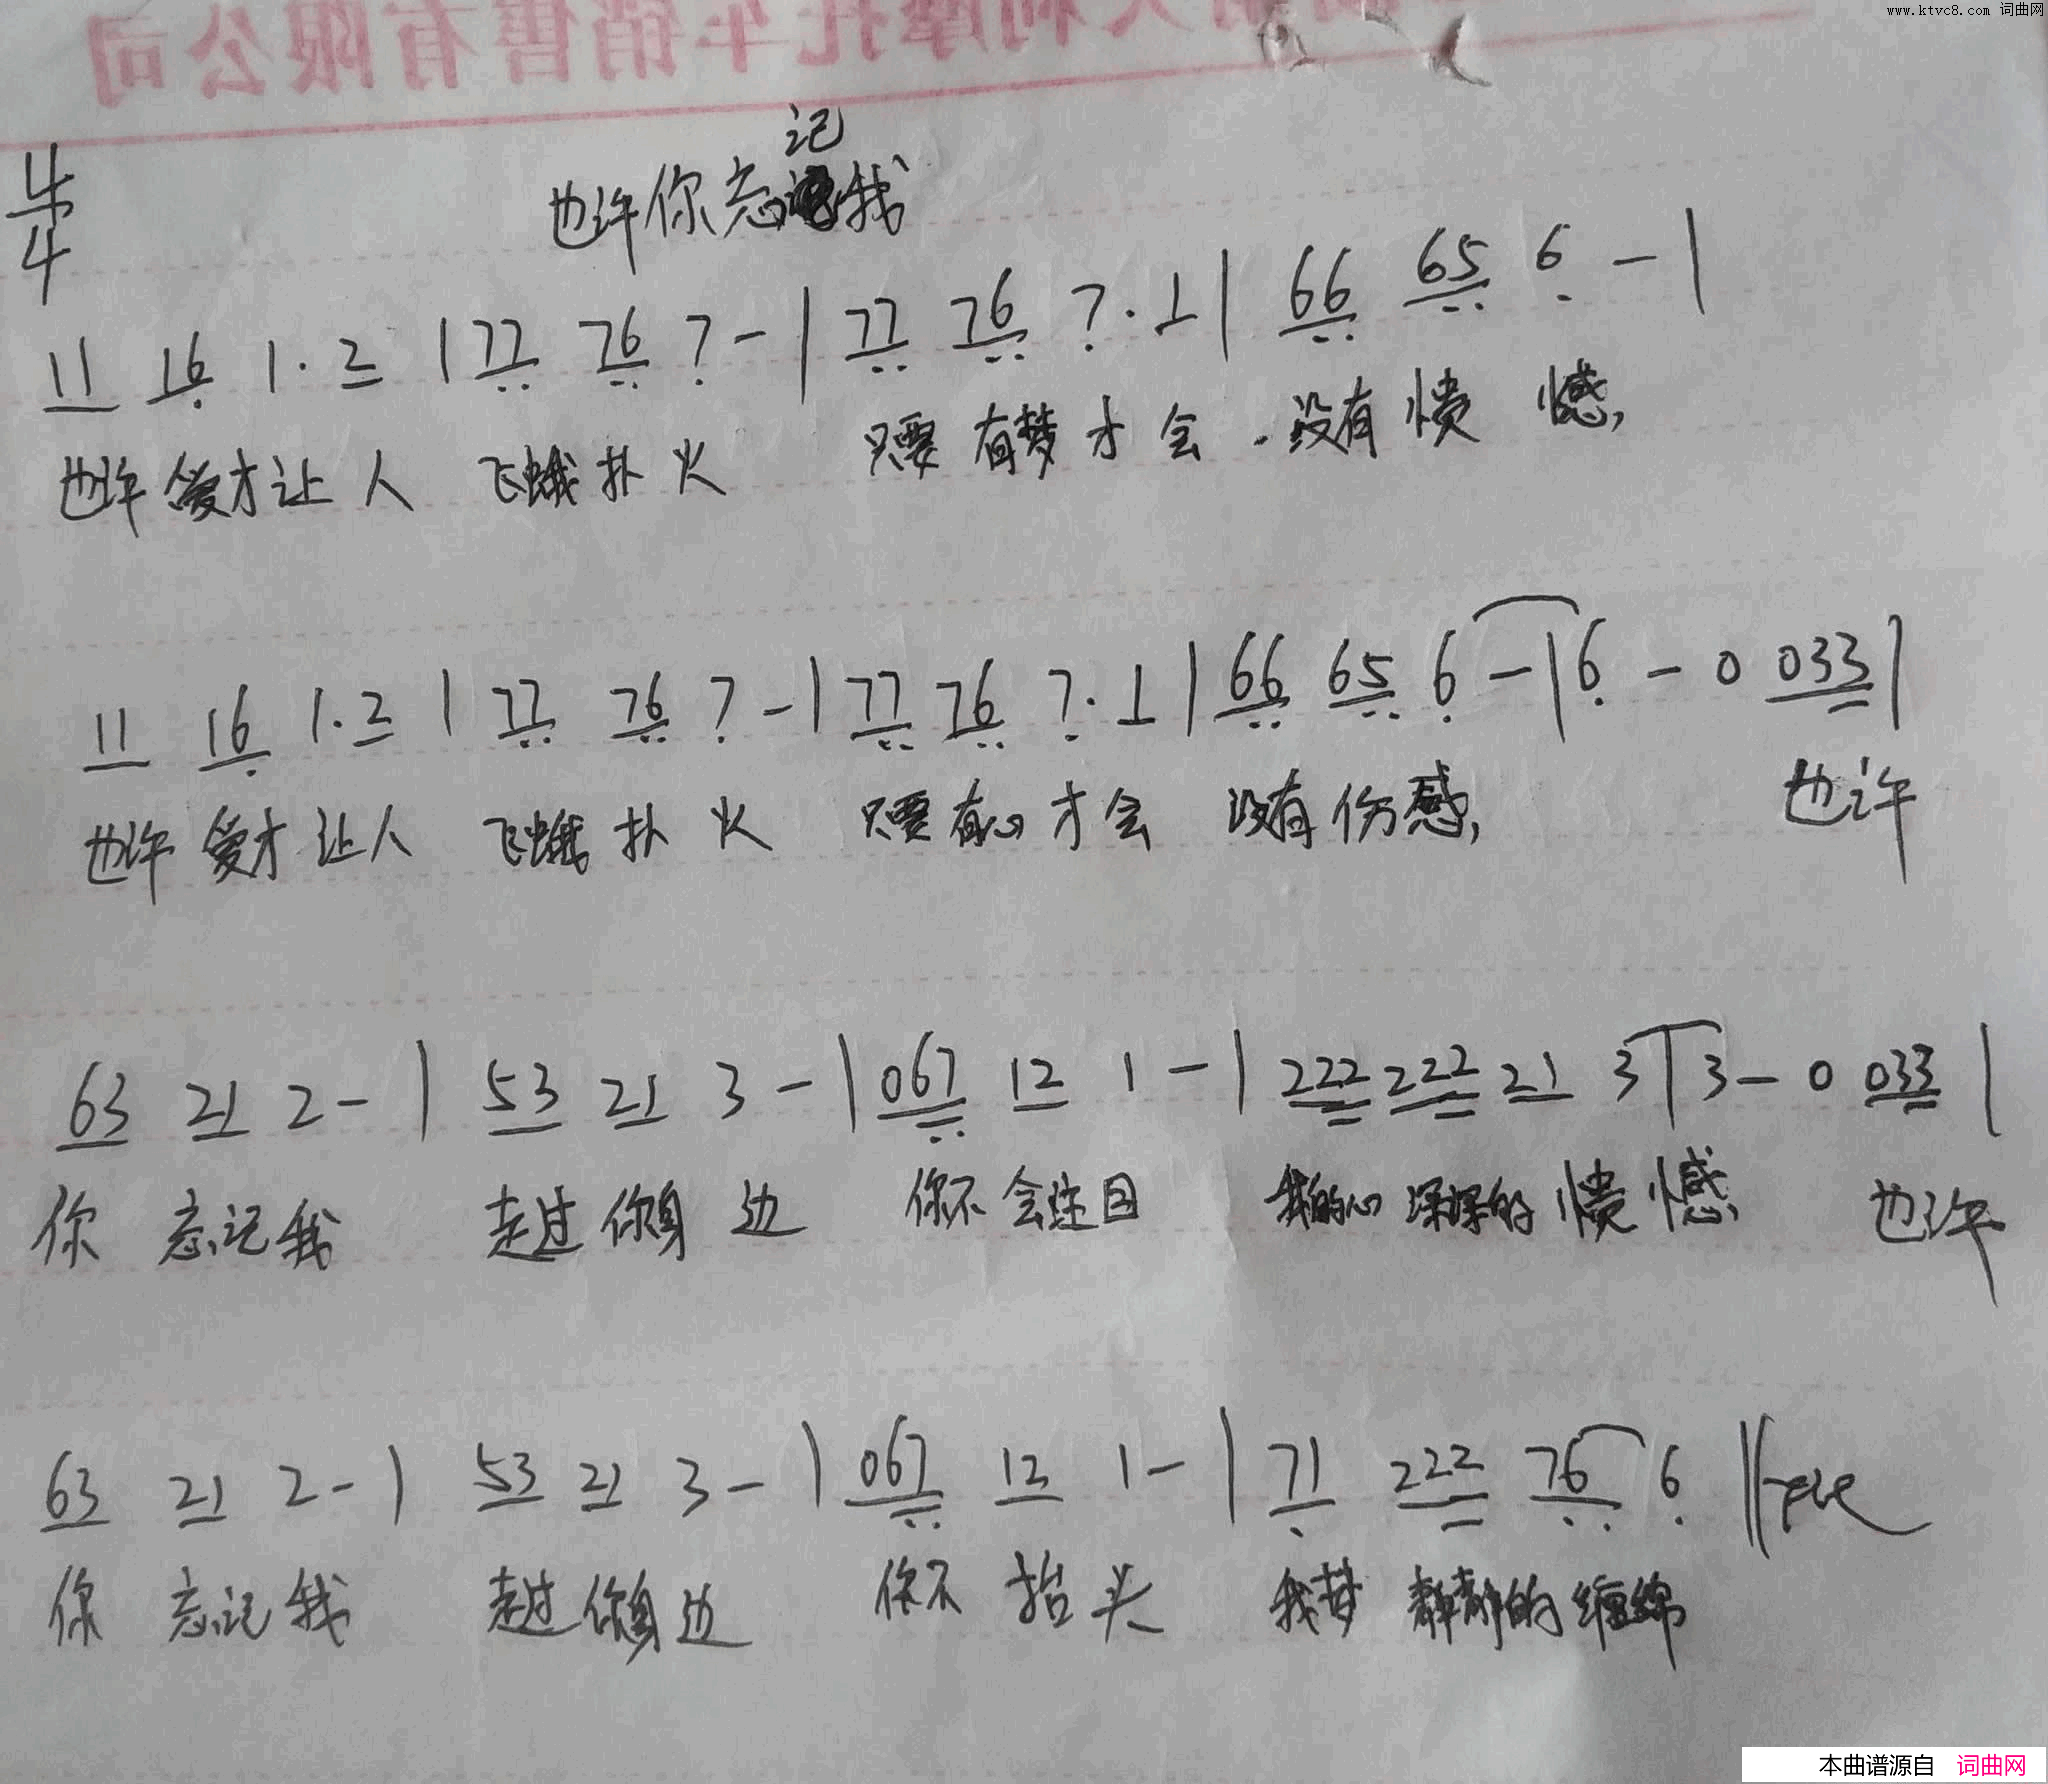 www.ktvc8.com 词曲网
摩托车销售有限公司
4/4
记
也许你忘我
11 16 1·2 | 77 76 7 - | 77 76 7·1 | 66 65 6 - |
也许爱才让人 飞蛾扑火 只要有梦才会·没有愤憾,
11 16 1·2 | 77 76 7 - | 77 76 7·1 | 66 65 6 - | 6 - 0 033 |
也许爱才让人 飞蛾扑火 只要有心才会 没有伤感, 也许
63 21 2 - | 53 21 3 - | 067 12 1 - | 222 222 21 3 | 3 - 0 033 |
你 忘记我 走过你身边 你不会注目 我的心深深的愤憾, 也许
63 21 2 - | 53 21 3 - | 067 12 1 - | 71 222 76 6 ||
你 忘记我 走过你身边 你不抬头 我梦静静的缠绵
本曲谱源自 词曲网